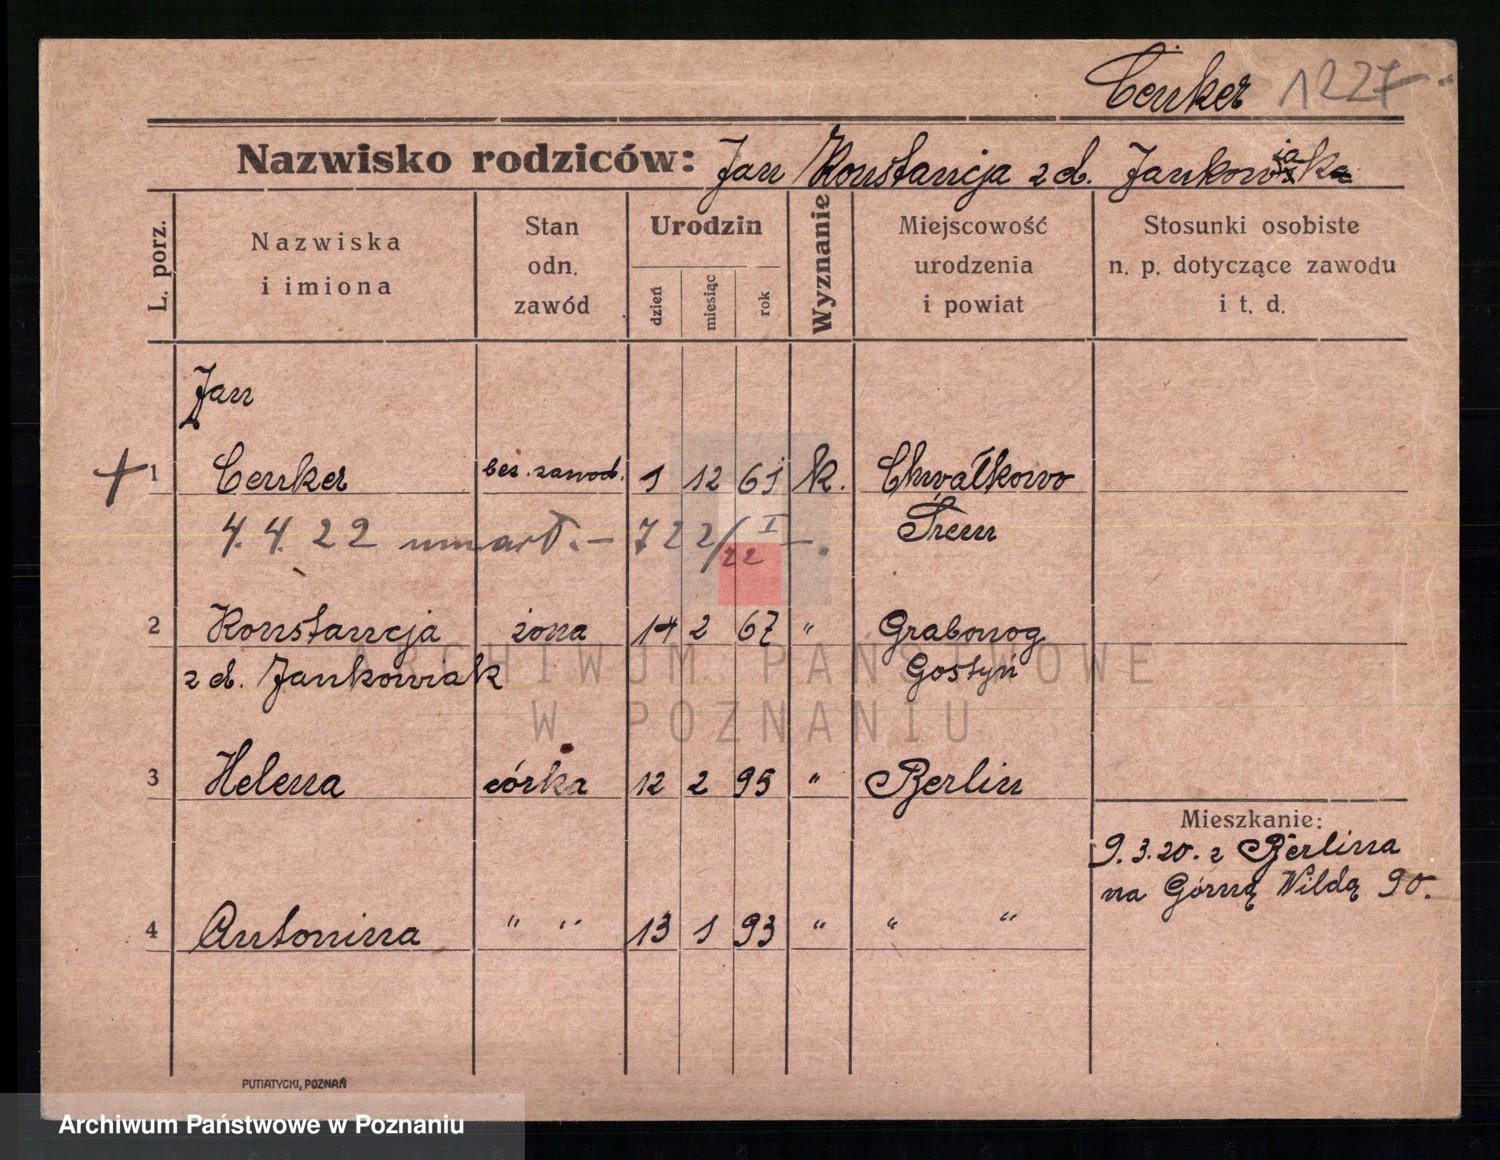 Cenker 1227
Nazwisko rodziców: Jan Konstancja z d. Jankowiak
L. porz.
Nazwiska
i imiona
Stan
odn.
zawód
Urodzin
dzień
miesiąc
rok
Wyznanie
Miejscowość
urodzenia
i powiat
Stosunki osobiste
n. p. dotyczące zawodu
i t. d.
Jan
+ 1 Cenker bez. zawod. 1 12 61 k. Chwałkowo
4.4.22 umarł.— 722/22 I —. Śrem
2 Konstancja żona 14 2 67 " Grabonog
z d. Jankowiak Gostyń
3 Helena córka 12 2 95 " Berlin
Mieszkanie:
9.3.20. z Berlina
na Górną Wildą 90.
4 Antonina " " 13 1 93 " " "
PUTIATYCKI, POZNAŃ
ARCHIWUM PAŃSTWOWE
W POZNANIU
Archiwum Państwowe w Poznaniu